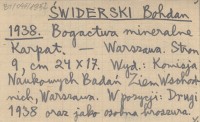 ŚWIDERSKI Bohdan
1938. Bogactwa mineralne
Karpat. — Warszawa. Stron
9, cm 24 x 17. Wyd.: Komisja
Naukowych Badań Ziem Wschod
nich, Warszawa. W pozycji: Drugi
1938 oraz jako osobna broszura.